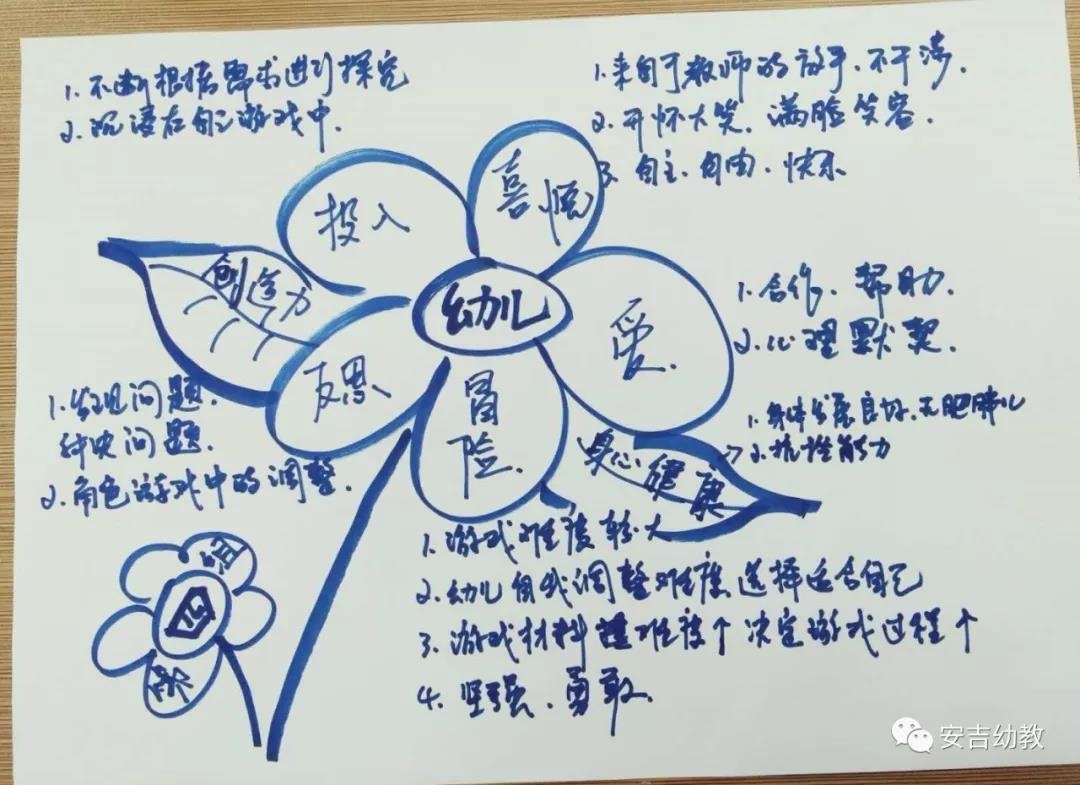 1. 不断根据需求进行探究
2. 沉浸在自己游戏中.
1. 来自于教师的放手、不干涉.
2. 开怀大笑、满脸笑容.
3. 自主、自由、快乐
投入
喜悦
创造力
幼儿
爱.
反思
冒险.
1. 合作、帮助.
2. 心理默契.
1. 发现问题.
解决问题.
2. 角色游戏中的调整.
1. 身体发展良好、无肥胖儿
2. 抗挫能力
身心健康
1. 游戏难度较大
2. 幼儿自我调整难度选择适合自己
3. 游戏材料 难度个 决定游戏过程个
4. 坚强、勇敢.
组
四
第
安吉幼教